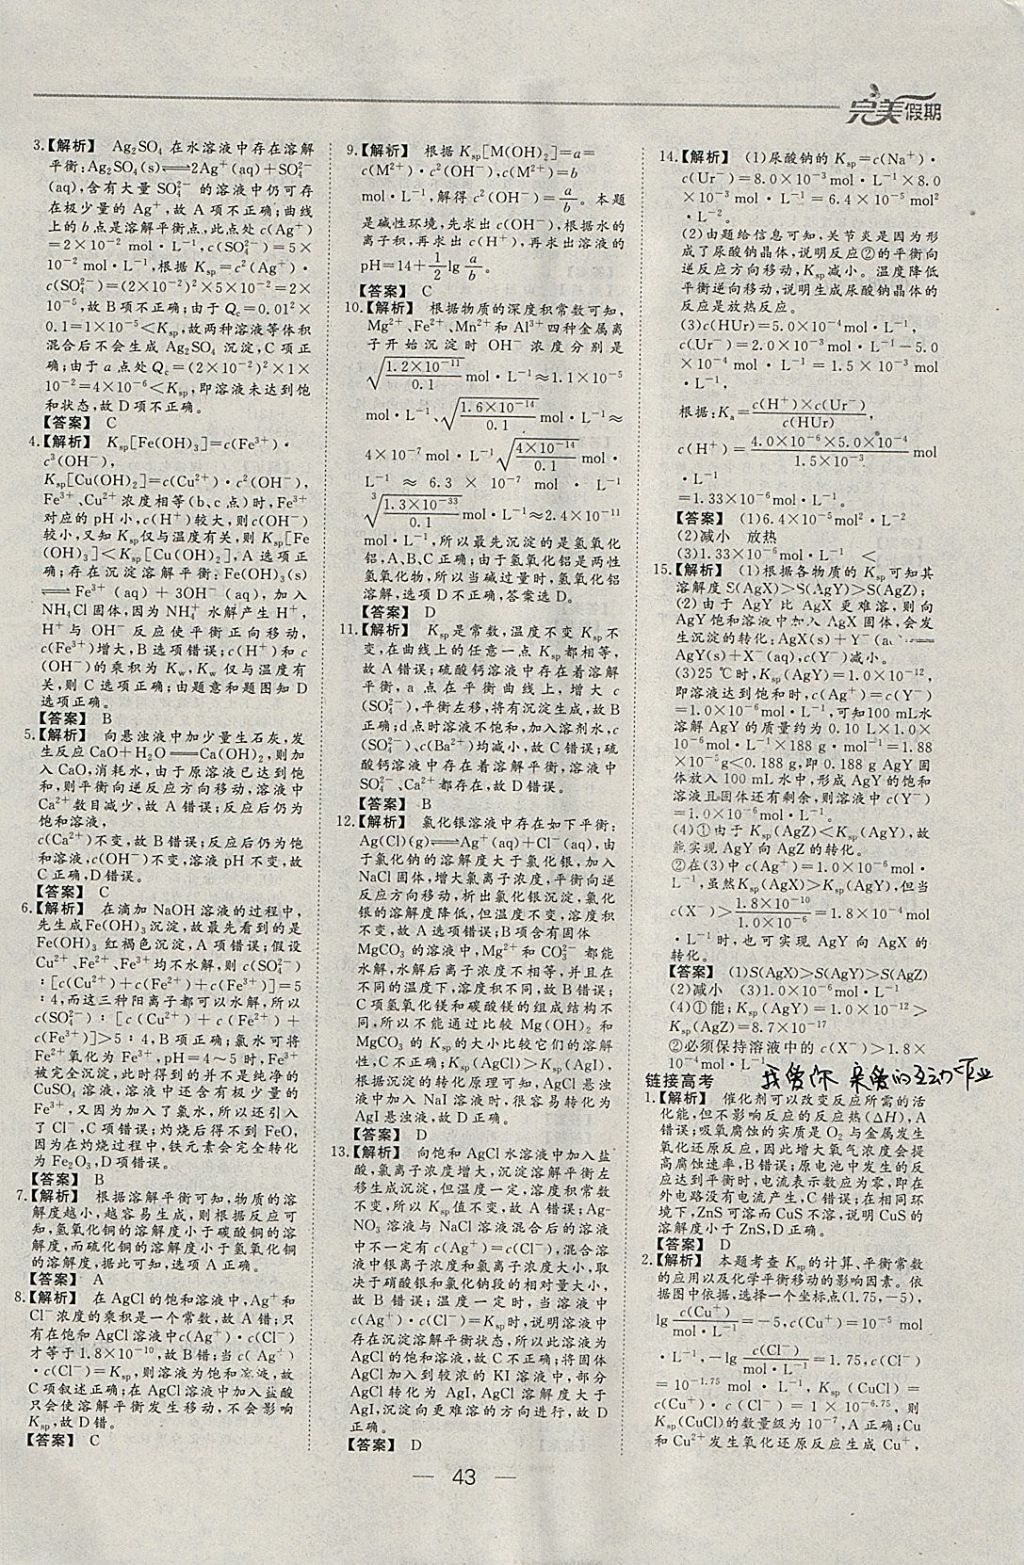 完美假期
3.【解析】 Ag₂SO₄ 在水溶液中存在溶解
平衡:Ag₂SO₄(s)⇌2Ag⁺(aq)+SO₄²⁻
(aq),含有大量 SO₄²⁻ 的溶液中仍可存
在极少量的 Ag⁺,故 A 项不正确;曲线
上的 b 点是溶解平衡点,此点处 c(Ag⁺)
=2×10⁻² mol·L⁻¹,c(SO₄²⁻)=5×
10⁻² mol·L⁻¹,根据 Ksp=c²(Ag⁺)·
c(SO₄²⁻)=(2×10⁻²)²×5×10⁻²=2×
10⁻⁵,故 B 项不正确;由于 Qc=0.01²×
0.1=1×10⁻⁵<Ksp,故两种溶液等体积
混合后不会生成 Ag₂SO₄ 沉淀,C 项正
确;由于 a 点处 Qc=(2×10⁻²)²×1×
10⁻²=4×10⁻⁶<Ksp,即溶液未达到饱
和状态,故 D 项不正确。
【答案】 C
4.【解析】 Ksp[Fe(OH)₃]=c(Fe³⁺)·
c³(OH⁻),
Ksp[Cu(OH)₂]=c(Cu²⁺)·c²(OH⁻),
Fe³⁺、Cu²⁺浓度相等(b、c点)时,Fe³⁺
对应的 pH 小,c(H⁺)较大,则 c(OH⁻)
较小,又知 Ksp仅与温度有关,则 Ksp[Fe
(OH)₃]<Ksp[Cu(OH)₂],A 选项正
确;存在沉淀溶解平衡:Fe(OH)₃(s)
⇌Fe³⁺(aq)+3OH⁻(aq),加入
NH₄Cl固体,因为 NH₄⁺水解产生 H⁺,
H⁺与 OH⁻ 反应使平衡正向移动,
c(Fe³⁺)增大,B选项错误;c(H⁺)和 c
(OH⁻)的乘积为 Kw,Kw 仅与温度有
关,则 C 选项正确;由题意和题图知 D
选项正确。
【答案】 B
5.【解析】 向悬浊液中加少量生石灰,发
生反应 CaO+H₂O══Ca(OH)₂,则加
入 CaO,消耗水,由于原溶液已达到饱
和,则平衡向逆反应方向移动,溶液中
Ca²⁺数目减少,故 A 错误;反应后仍为
饱和溶液,
c(Ca²⁺)不变,故 B 错误;反应后仍为饱
和溶液,c(OH⁻)不变,溶液 pH 不变,故
C 正确,D错误。
【答案】 C
6.【解析】 在滴加 NaOH 溶液的过程中,
先生成Fe(OH)₃沉淀,故最先看到的是
Fe(OH)₃ 红褐色沉淀,A 项错误;假设
Cu²⁺、Fe²⁺、Fe³⁺均不水解,则 c(SO₄²⁻)
∶[c(Cu²⁺)+c(Fe²⁺)+c(Fe³⁺)]=5
∶4,而这三种阳离子都可以水解,所以
c(SO₄²⁻)∶[c(Cu²⁺)+c(Fe²⁺)+
c(Fe³⁺)]>5∶4,B项正确;氯水可将
Fe²⁺氧化为 Fe³⁺,pH=4～5 时,Fe³⁺
被完全沉淀,此时得到的并不是纯净的
CuSO₄ 溶液,溶液中还含有极少量的
Fe³⁺,又因为加入了氯水,所以还引入
了 Cl⁻,C项错误;灼烧后得不到 FeO,
因为在灼烧过程中,铁元素会完全转化
为 Fe₂O₃,D项错误。
【答案】 B
7.【解析】 根据溶解平衡可知,物质的溶
解度越小,越容易生成,则根据反应可
知,氢氧化铜的溶解度小于碳酸铜的溶
解度,而硫化铜的溶解度小于氢氧化铜
的溶解度,据此可知,选项 A 正确。
【答案】 A
8.【解析】 在AgCl的饱和溶液中,Ag⁺和
Cl⁻浓度的乘积是一个常数,故 A 错;只
有在饱和 AgCl溶液中c(Ag⁺)·c(Cl⁻)
才等于1.8×10⁻¹⁰,故 B 错;当 c(Ag⁺)
·c(Cl⁻)=Ksp,则溶液为饱和溶液,故
C 项叙述正确;在 AgCl溶液中加入盐酸
只会使溶解平衡发生移动,不会影响
Ksp,故 D 错。
【答案】 C
9.【解析】 根据 Ksp[M(OH)₂]=a=
c(M²⁺)·c²(OH⁻),c(M²⁺)=b
mol·L⁻¹,解得 c(OH⁻)=√(a/b)。本题
是碱性环境,先求出 c(OH⁻),根据水的
离子积,再求出 c(H⁺),再求出溶液的
pH=14+1/2lg a/b。
【答案】 C
10.【解析】 根据物质的深度积常数可知,
Mg²⁺、Fe²⁺、Mn²⁺和 Al³⁺四种金属离
子开始沉淀时 OH⁻ 浓度分别是
√(1.2×10⁻¹¹/0.1) mol·L⁻¹≈1.1×10⁻⁵
mol·L⁻¹、√(1.6×10⁻¹⁴/0.1) mol·L⁻¹≈
4×10⁻⁷mol·L⁻¹√(4×10⁻¹⁴/0.1) mol·
L⁻¹ ≈ 6.3 × 10⁻⁷ mol · L⁻¹、
³√(1.3×10⁻³³/0.1) mol·L⁻¹≈2.4×10⁻¹¹
mol·L⁻¹,所以最先沉淀的是氢氧化
铝,A、B、C 正确;由于氢氧化铝是两性
氢氧化物,所以当碱过量时,氢氧化铝
溶解,选项 D不正确,答案选 D。
【答案】 D
11.【解析】 Ksp是常数,温度不变 Ksp不
变,在曲线上的任意一点 Ksp都相等,
故 A 错误;硫酸钙溶液中存在着溶解
平衡,a 点在平衡曲线上,增大 c
(SO₄²⁻),平衡左移,将有沉淀生成,故 B
正确;d点时溶液不饱和,加入溶剂水,c
(SO₄²⁻)、c(Ba²⁺)均减小,故 C错误;硫
酸钙溶液中存在着溶解平衡,溶液中
SO₄²⁻、Ca²⁺都存在,故 D 错误。
【答案】 B
12.【解析】 氯化银溶液中存在如下平衡:
Ag(Cl)(g)⇌Ag⁺(aq)+Cl⁻(aq),由
于氯化钠的溶解度大于氯化银,加入
NaCl 固体,增大氯离子浓度,平衡向逆
反应方向移动,析出氯化银沉淀,氯化
银的溶解度降低,但温度不变,溶度积
不变,故 A 选项错误;B项含有固体
MgCO₃ 的溶液中,Mg²⁺和 CO₃²⁻ 都能
水解,水解后离子浓度不相等,并且在
不同的温度下,溶度积不同,故 B 错误;
C 项氢氧化镁和碳酸镁的组成结构不
同,所以不能通过比较 Mg(OH)₂ 和
MgCO₃ 的 Ksp的大小比较它们的溶解
性,C 不正确;Ksp(AgCl)>Ksp(AgI),
根据沉淀的转化原理可知,AgCl 悬浊
液中加入 NaI 溶液时,很容易转化为
AgI悬浊液,故 D 正确。
【答案】 D
13.【解析】 向饱和AgCl水溶液中加入盐
酸,氯离子浓度增大,沉淀溶解平衡左
移生成沉淀,但温度一定,溶度积常数
不变,所以 Ksp值不变,故 A 错误;Ag-
NO₃ 溶液与 NaCl 溶液混合后的溶液
中不一定有 c(Ag⁺)=c(Cl⁻),混合溶
液中银离子浓度和氯离子浓度大小,取
决于硝酸银和氯化钠段的相对量大小,
故 B 错误;温度一定时,当溶液中
c(Ag⁺)·c(Cl⁻)=Ksp时,说明溶液中
存在沉淀溶解平衡状态,所以此溶液为
AgCl的饱和溶液,故C不正确;将固体
AgCl 加入到较浓的 KI 溶液中,部分
AgCl 转化为 AgI,AgCl 溶解度大于
AgI,沉淀向更难溶的方向进行,故 D
正确。
【答案】 D
14.【解析】 (1)尿酸钠的 Ksp=c(Na⁺)·
c(Ur⁻)=8.0×10⁻³mol·L⁻¹×8.0
×10⁻⁴mol·L⁻¹=6.4×10⁻⁵mol²
·L⁻²。
(2)由题给信息可知,关节炎是因为形
成了尿酸钠晶体,说明反应②的平衡向
逆反应方向移动,Ksp减小。温度降低
平衡逆向移动,说明生成尿酸钠晶体的
反应是放热反应。
(3)c(HUr)=5.0×10⁻⁴mol·L⁻¹,
c(Ur⁻)=2.0×10⁻³mol·L⁻¹−5.0
×10⁻⁴mol·L⁻¹=1.5×10⁻³mol
·L⁻¹,
根据:Ka=c(H⁺)×c(Ur⁻)/c(HUr)
c(H⁺)=4.0×10⁻⁶×5.0×10⁻⁴/1.5×10⁻³ mol
·L⁻¹
=1.33×10⁻⁶mol·L⁻¹。
【答案】 (1)6.4×10⁻⁵mol²·L⁻²
(2)减小 放热
(3)1.33×10⁻⁶mol·L⁻¹ <
15.【解析】 (1)根据各物质的 Ksp可知其
溶解度 S(AgX)>S(AgY)>S(AgZ);
(2)由于 AgY 比 AgX 更难溶,则向
AgY饱和溶液中加入 AgX 固体,会发
生沉淀的转化:AgX(s)+Y⁻(a
AgY(s)+X⁻(aq),c(Y⁻)减小。
(3)25 ℃时,Ksp(AgY)=1.0×10⁻¹²,
即溶液达到饱和时,c(Ag⁺)=c(Y⁻)
=1.0×10⁻⁶mol·L⁻¹,可知100 mL水
溶解 AgY 的质量约为 0.10 L×1.0×
10⁻⁶mol·L⁻¹×188 g·mol⁻¹=1.88
×10⁻⁵g<0.188 g,即 0.188 g AgY 固
体放入 100 mL 水中,形成 AgY 的饱和
溶液且固体还有剩余,则溶液中 c(Y⁻)
=1.0×10⁻⁶mol·L⁻¹。
(4)①由于 Ksp(AgZ)<Ksp(AgY),故
能实现 AgY 向 AgZ 的转化。
②在(3)中 c(Ag⁺)=1.0×10⁻⁶mol·
L⁻¹,虽然Ksp(AgX)>Ksp(AgY),但当
c(X⁻)>1.8×10⁻¹⁰/1.0×10⁻⁶=1.8×10⁻⁴mol
·L⁻¹时,也可实现 AgY 向 AgX 的
转化。
【答案】 (1)S(AgX)>S(AgY)>S(AgZ)
(2)减小 (3)1.0×10⁻⁶mol·L⁻¹
(4)①能;Ksp(AgY)=1.0×10⁻¹²>
Ksp(AgZ)=8.7×10⁻¹⁷
②必须保持溶液中的 c(X⁻)>1.8×
10⁻⁴mol·L⁻¹
链接高考
1.【解析】 催化剂可以改变反应所需的活
化能,但不影响反应的反应热(ΔH),A
错误;吸氧腐蚀的实质是 O₂ 与金属发生
氧化还原反应,因此增大氧气浓度会提
高腐蚀速率,B 错误;原电池中发生的反
应达到平衡时,电流表示数应为零,即在
外电路没有电流产生,C 错误;在相同环
境下,ZnS可溶而CuS不溶,说明 CuS的
溶解度小于 ZnS,D正确。
【答案】 D
2.【解析】 本题考查 Ksp的计算、平衡常数
的应用以及化学平衡移动的影响因素。依
据图中依据,选择一个坐标点(1.75,−5),
lg c(Cu⁺)/mol·L⁻¹=−5,c(Cu⁺)=10⁻⁵ mol
·L⁻¹,−lg c(Cl⁻)/mol·L⁻¹=1.75,c(Cl⁻)
=10⁻¹·⁷⁵ mol·L⁻¹,Ksp(CuCl)=
c(Cu⁺)·c(Cl⁻)=1×10⁻⁶·⁷⁵,则
Ksp(CuCl)的数量级为10⁻⁷,A 正确;Cu
和 Cu²⁺发生氧化还原反应生成 Cu⁺,
— 43 —